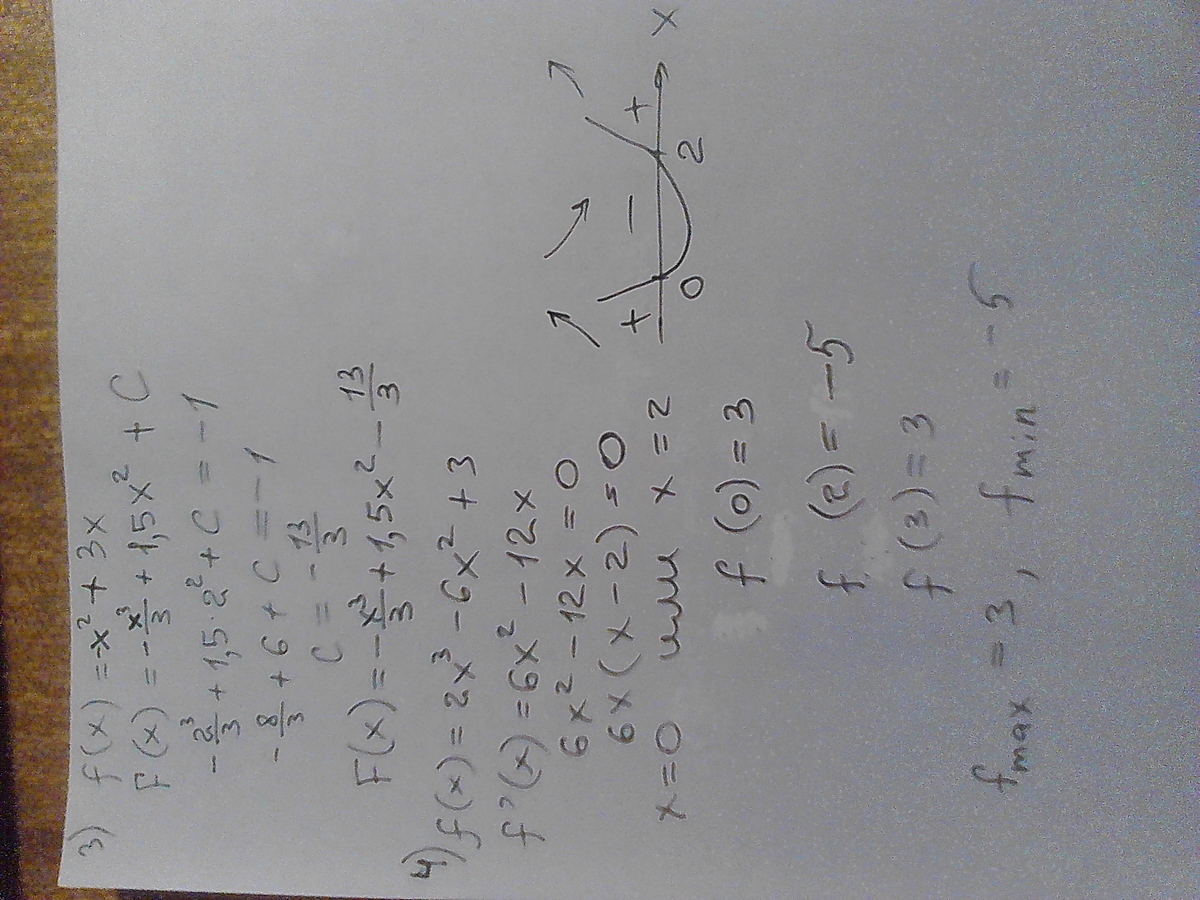 3) f(x) = -x² + 3x
F(x) = -x³/3 + 1,5x² + C
-2³/3 + 1,5·2² + C = -1
-8/3 + 6 + C = -1
C = -13/3
F(x) = -x³/3 + 1,5x² - 13/3
4) f(x) = 2x³ - 6x² + 3
f'(x) = 6x² - 12x
6x² - 12x = 0
6x(x - 2) = 0
x = 0 или x = 2
+ - + x
0 2
f(0) = 3
f(2) = -5
f(3) = 3
fmax = 3, fmin = -5